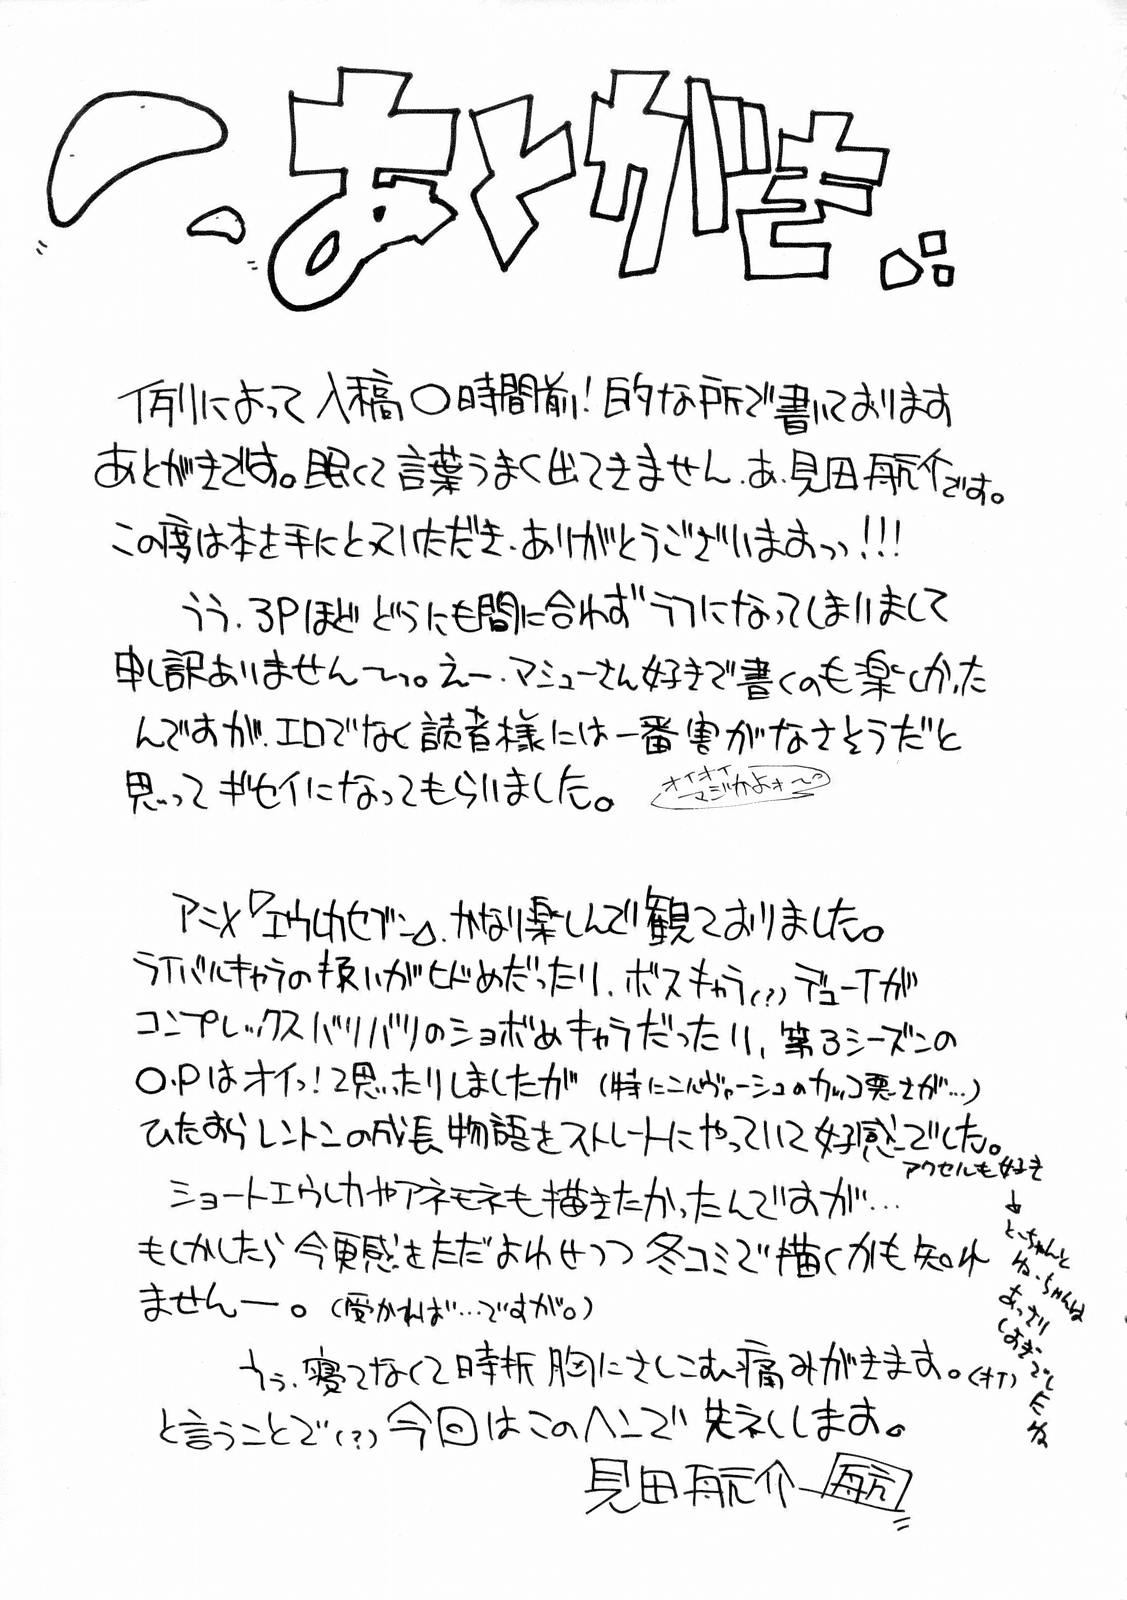 あとがき
例によって入稿〇時間前！的な所で書いております
あとがきです。眠くて言葉うまく出てきません.あ.見田航介です。
この度は本を手にとっていただき.ありがとうございますっっ!!!
うぅ.3Pほどどうにも間に合わずラフになってしまいまして
申し訳ありません〜っ。えー.マシューさん好きで書くのも楽しかった
んですが.エロでなく読者様には一番害がなさそうだと
思ってギセイになってもらいました。
オイオイ
マジかよォ〜。
アニメ『エウレカセブン』.かなり楽しんで観ておりました。
ライバルキャラの扱いがヒドめだったり、ボスキャラ(?)デューイが
コンプレックスバリバリのショボめキャラだったり、第3シーズンの
O.Pはオイっ!と思ったりしましたが（特にニルヴァーシュのカッコ悪さが…）
ひたすらレントンの成長物語をストレートにやっていて好感でした。
アクセルも好き
ショートエウレカやアネモネも描きたかったんですが…
もしかしたら今更感をただよわせつつ冬コミで描くかも知れ
ませんー。（受かれば…ですが。）
うぅ.寝てなくて時折胸にさしこむ痛みがきます。（オイ）
と言うことで(?)今回はこのヘンで失礼します。
見田航介
航
↓
と、ちゃんと
ね、ちゃんは
あっさり
しすぎ、
でし
たね